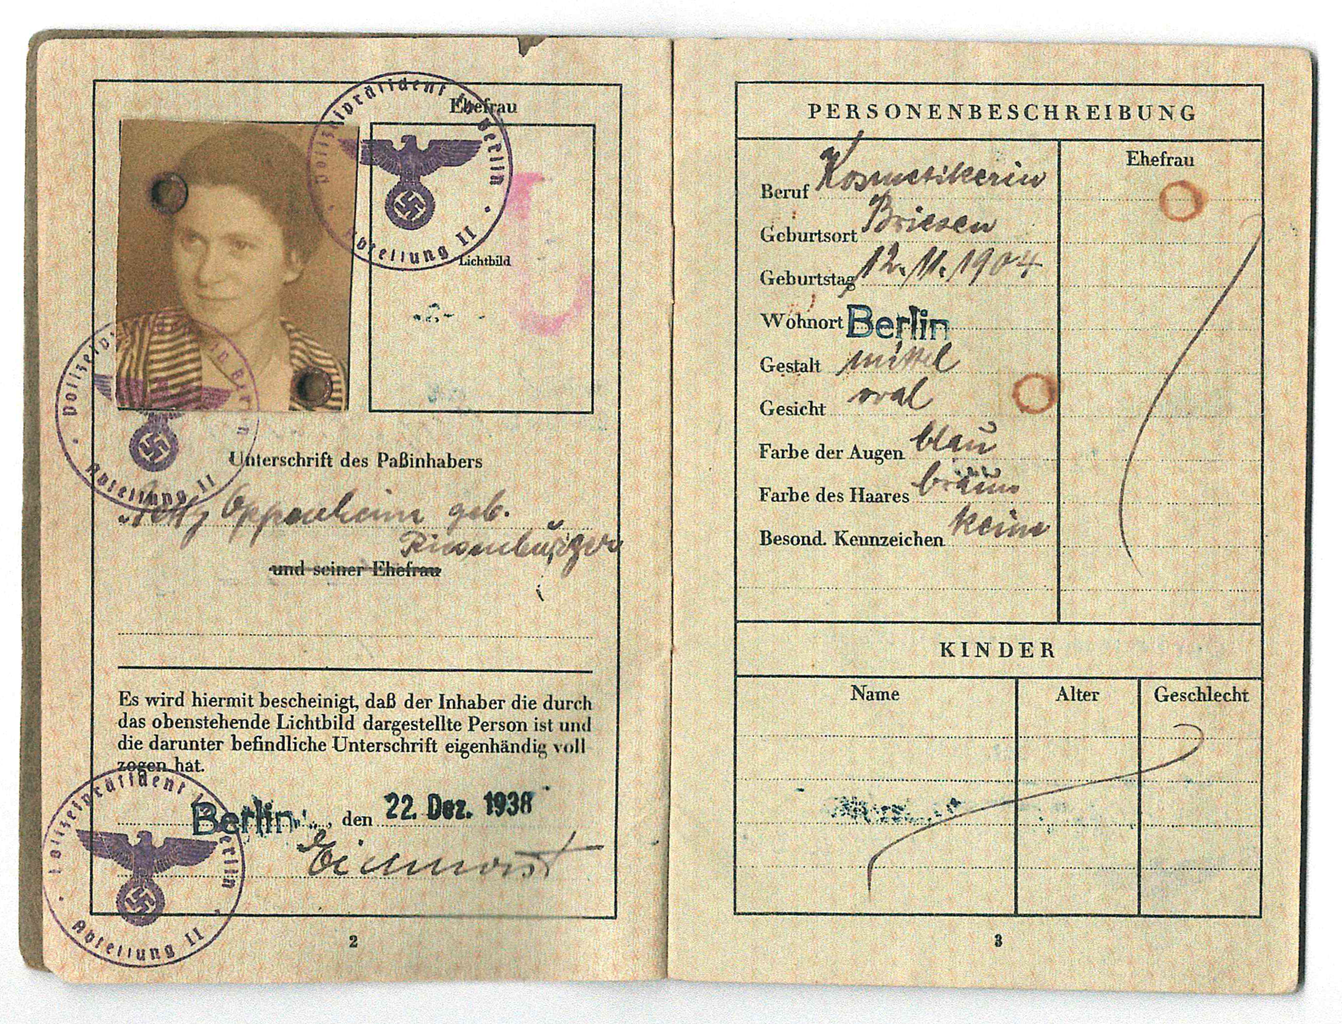 Ehefrau
Polizeipräsident in Berlin
Abteilung II
Lichtbild
J
Polizeipräsident in Berlin
Abteilung II
Unterschrift des Paßinhabers
Oppenheim geb.
Riesenburger
und seiner Ehefrau
Es wird hiermit bescheinigt, daß der Inhaber die durch
das obenstehende Lichtbild dargestellte Person ist und
die darunter befindliche Unterschrift eigenhändig voll
zogen hat.
Polizeipräsident in Berlin
Abteilung II
Berlin, den 22. Dez. 1938
2
PERSONENBESCHREIBUNG
Ehefrau
Beruf Kosmetikerin
Geburtsort Briesen
Geburtstag 12. 11. 1904
Wohnort Berlin
Gestalt mittel
Gesicht oval
Farbe der Augen blau
Farbe des Haares braun
Besond. Kennzeichen keine
KINDER
Name Alter Geschlecht
3